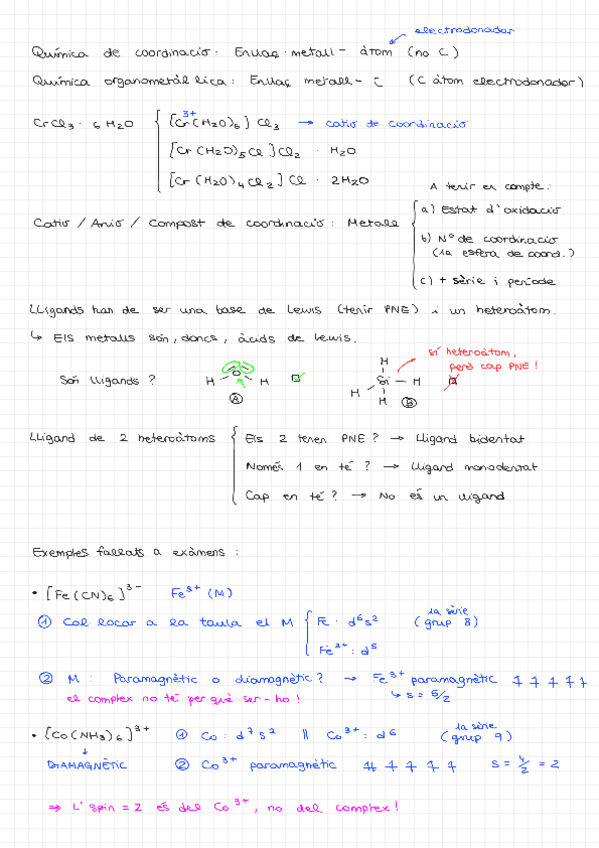 electrodonador
Química de coordinació: Enllaç metall - àtom (no C)
Química organometàl·lica: Enllaç metall - C (C àtom electrodonador)
CrCl3 · 6H2O
[Cr(H2O)6]Cl3 → catió de coordinació
3+
[Cr(H2O)5Cl]Cl2 · H2O
[Cr(H2O)4Cl2]Cl · 2H2O
A tenir en compte:
Catió / Anió / Compost de coordinació: Metall
a) Estat d'oxidació
b) Nº de coordinació
(1a esfera de coord.)
c) + sèrie i període
Lligands han de ser una base de Lewis (tenir PNE) i un heteroàtom.
↳ Els metalls són, doncs, àcids de Lewis.
Són lligands?
H O H
A
H
Si - H
H H
B
sí heteroàtom,
però cap PNE!
Lligand de 2 heteroàtoms
Els 2 tenen PNE? → Lligand bidentat
Només 1 en té? → Lligand monodentat
Cap en té? → No és un lligand
Exemples fallats a exàmens:
• [Fe(CN)6]3- Fe3+ (M)
① Cal locar a la taula el M
Fe: d6s2
1a sèrie
(grup 8)
Fe3+: d5
② M: Paramagnètic o diamagnètic? → Fe3+ paramagnètic
el complex no té per què ser-ho!
↳ s = 5/2
• [Co(NH3)6]3+ ① Co: d7s2 || Co3+: d6
1a sèrie
(grup 9)
↓
DIAMAGNÈTIC ② Co3+ paramagnètic
s = 4/2 = 2
⇒ L'spin = 2 és del Co3+, no del complex!